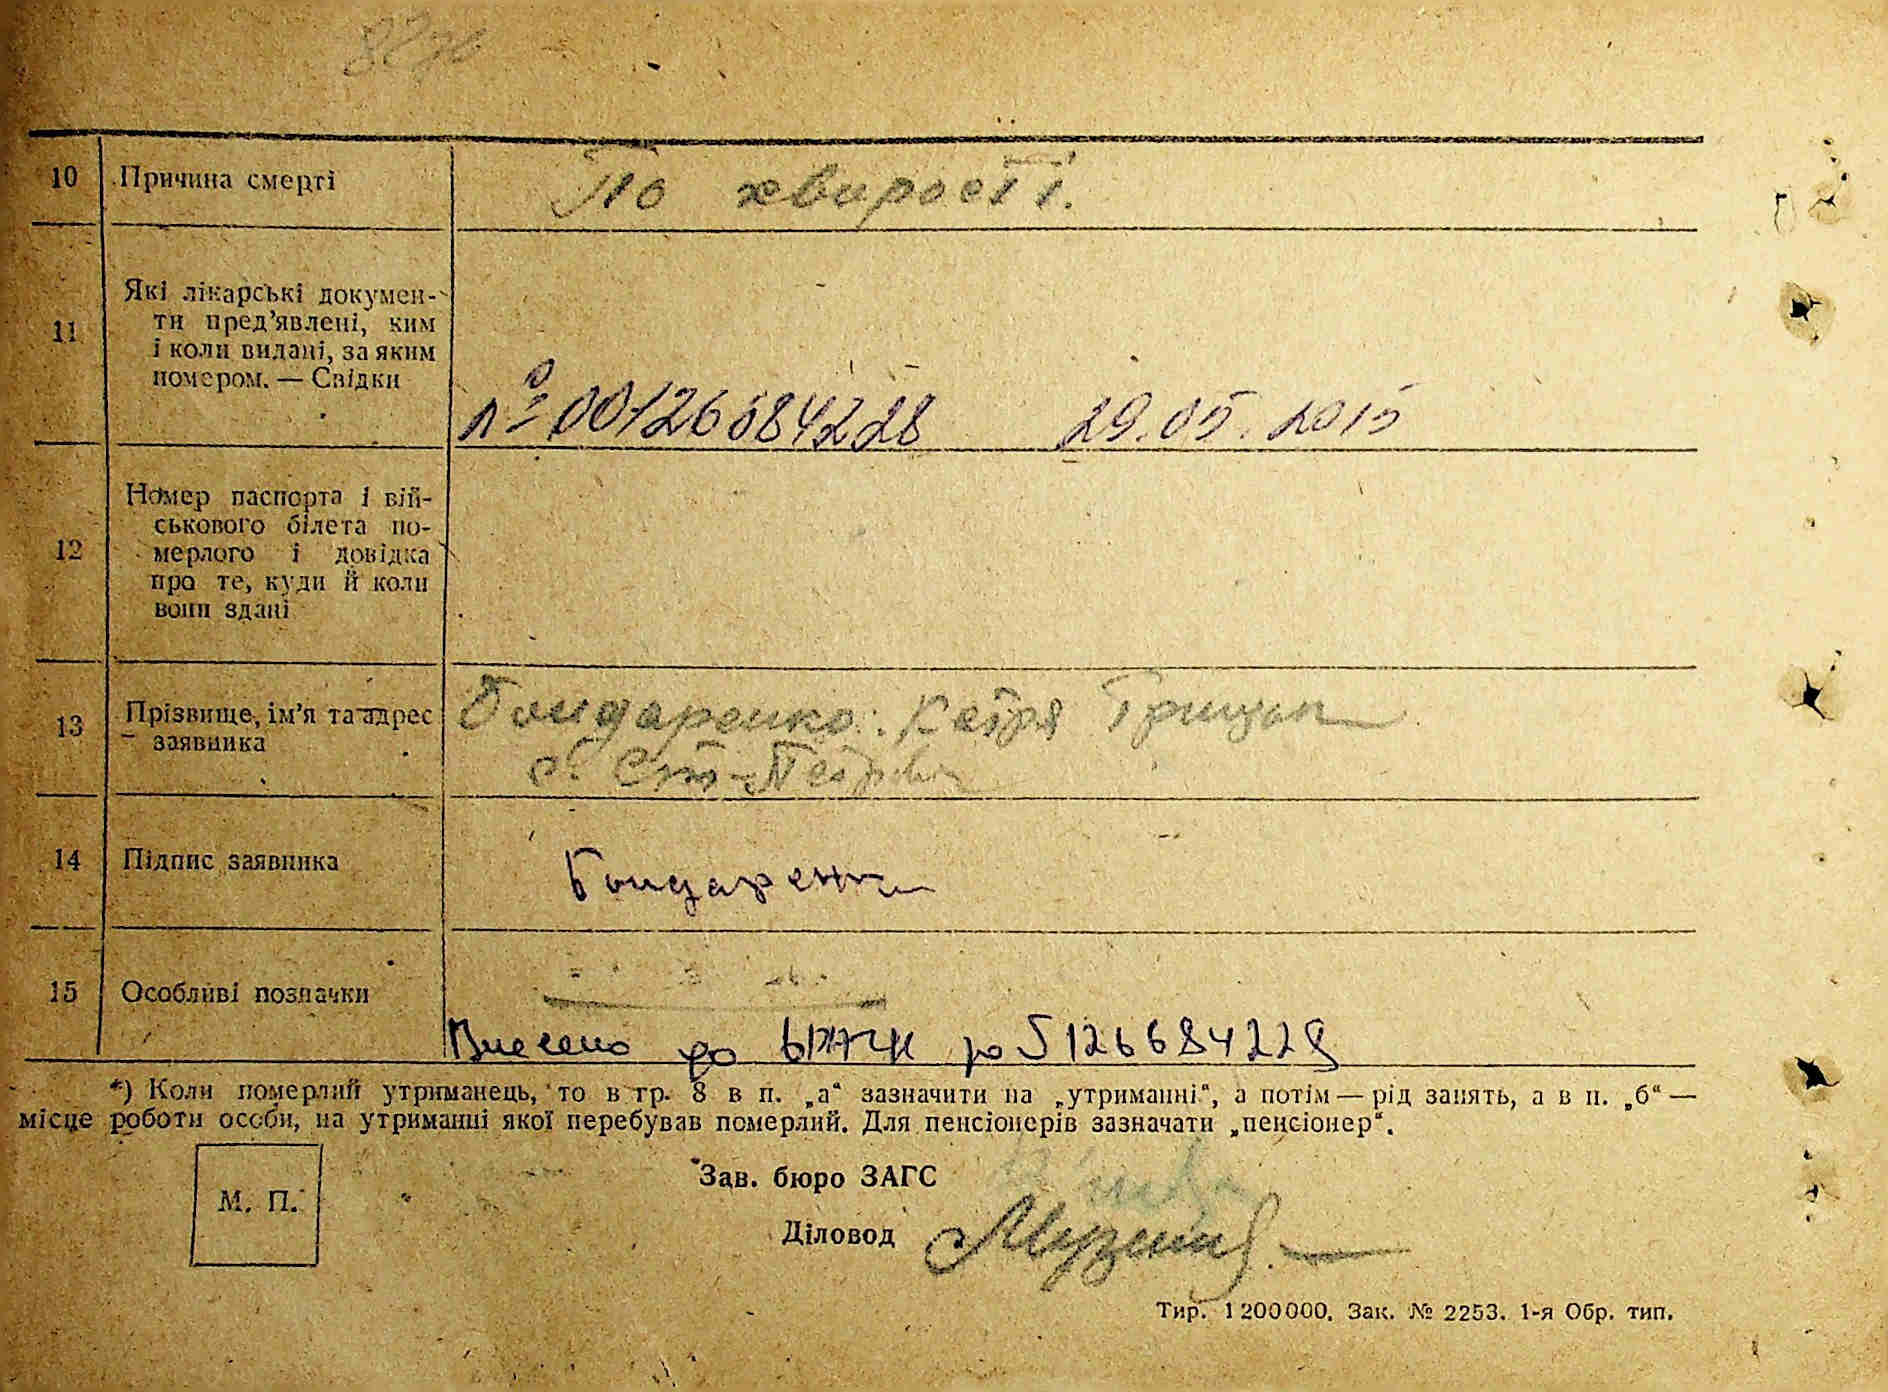 82
10 Причина смерті По хвирості.
11 Які лікарські докумен-
ти пред’явлені, ким
і коли видані, за яким
номером. — Свідки
№ 00126684228 29.05.2015
12 Номер паспорта і вій-
ськового білета по-
мерлого і довідка
про те, куди й коли
вони здані
13 Прізвище, ім’я та адрес Бондаренко Катря Грицьк
заявника
с.
14 Підпис заявника Бондаренко
15 Особливі позначки
Внесено до 126684228
*) Коли померлий утриманець, то в гр. 8 в п. „а“ зазначити на „утриманні“, а потім — рід занять, а в п. „б“ —
місце роботи особи, на утриманні якої перебував померлий. Для пенсіонерів зазначати „пенсіонер“.
М. П.
Зав. бюро ЗАГС
Діловод
Тир. 1 200 000. Зак. № 2253. 1-я Обр. тип.